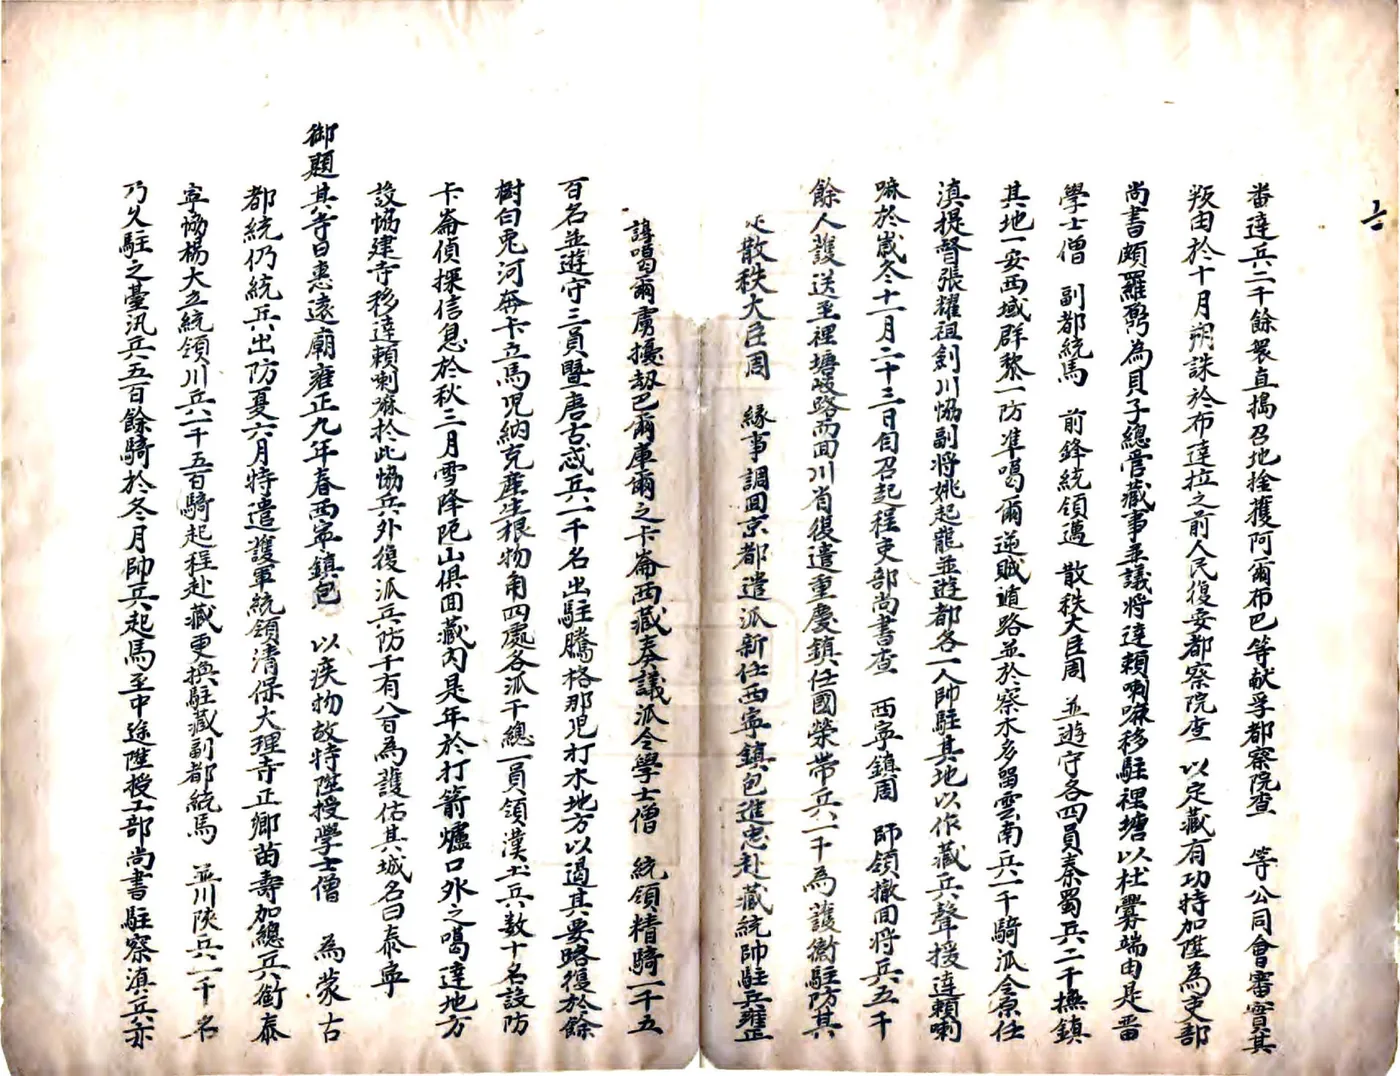 番達兵二千餘衆直搗召地拴獲阿爾布巴等献孚都察院查 等公同會審實其
叛由於十月朔誅於布達拉之前人民復安都察院查 以定藏有功特加陞為吏部
尚書頗羅鼐為貝子總管藏事並議將達賴喇嘛移駐裡塘以杜釁端由是畨
學士僧 副都統馬 前鋒統領邁 散秩大臣周 並遊守各四員秦蜀兵二千撫鎮
其地一安西域群黎一防準噶爾逆賊逍路並於察木多留雲南兵一千騎派令原任
滇提督張耀祖剑川恊副将姚起龍並遊都各一人帥駐其地以作藏兵聲援達賴喇
嘛於嵗冬十一月二十三日自召起程吏部尚書查 西寧鎮周 師領撤回将兵五千
餘人護送至裡塘歧路而回川省復遣重慶鎮任國榮帶兵一千為護衛駐防其
散秩大臣周 緣事調回京都遣派新任西寧鎮包進忠赴藏統帥駐兵雍正
噶爾虏擾刼巴爾庫爾之卡崙西藏奏議派令學士僧 統領精騎一千五
百名並遊守三員暨唐古忒兵一千名出駐騰格那児打木地方以遏其要路復於餘
樹白兎河奔卡立馬児納克産生根物角四處各派千總一員領漢土兵数十名設防
卡崙偵探信息於秋三月雪降阨山俱回藏内是年於打箭爐口外之噶達地方
設恊建寺移達賴喇嘛於此恊兵外復派兵防千有八百為護估其城名曰泰寧
御題其寺曰惠遠廟雍正九年春西寧鎮包 以疾物故特陞授學士僧 為蒙古
都統仍統兵出防夏六月特遣護軍統領清保大理寺正卿苗壽加總兵銜泰
寧恊楊大立統領川兵一千五百騎起程赴藏更換駐藏副都統馬 並川陝兵一千名
乃久駐之臺汛兵五百餘騎於冬月帥兵起馬至中途陞授工部尚書駐察滇兵亦